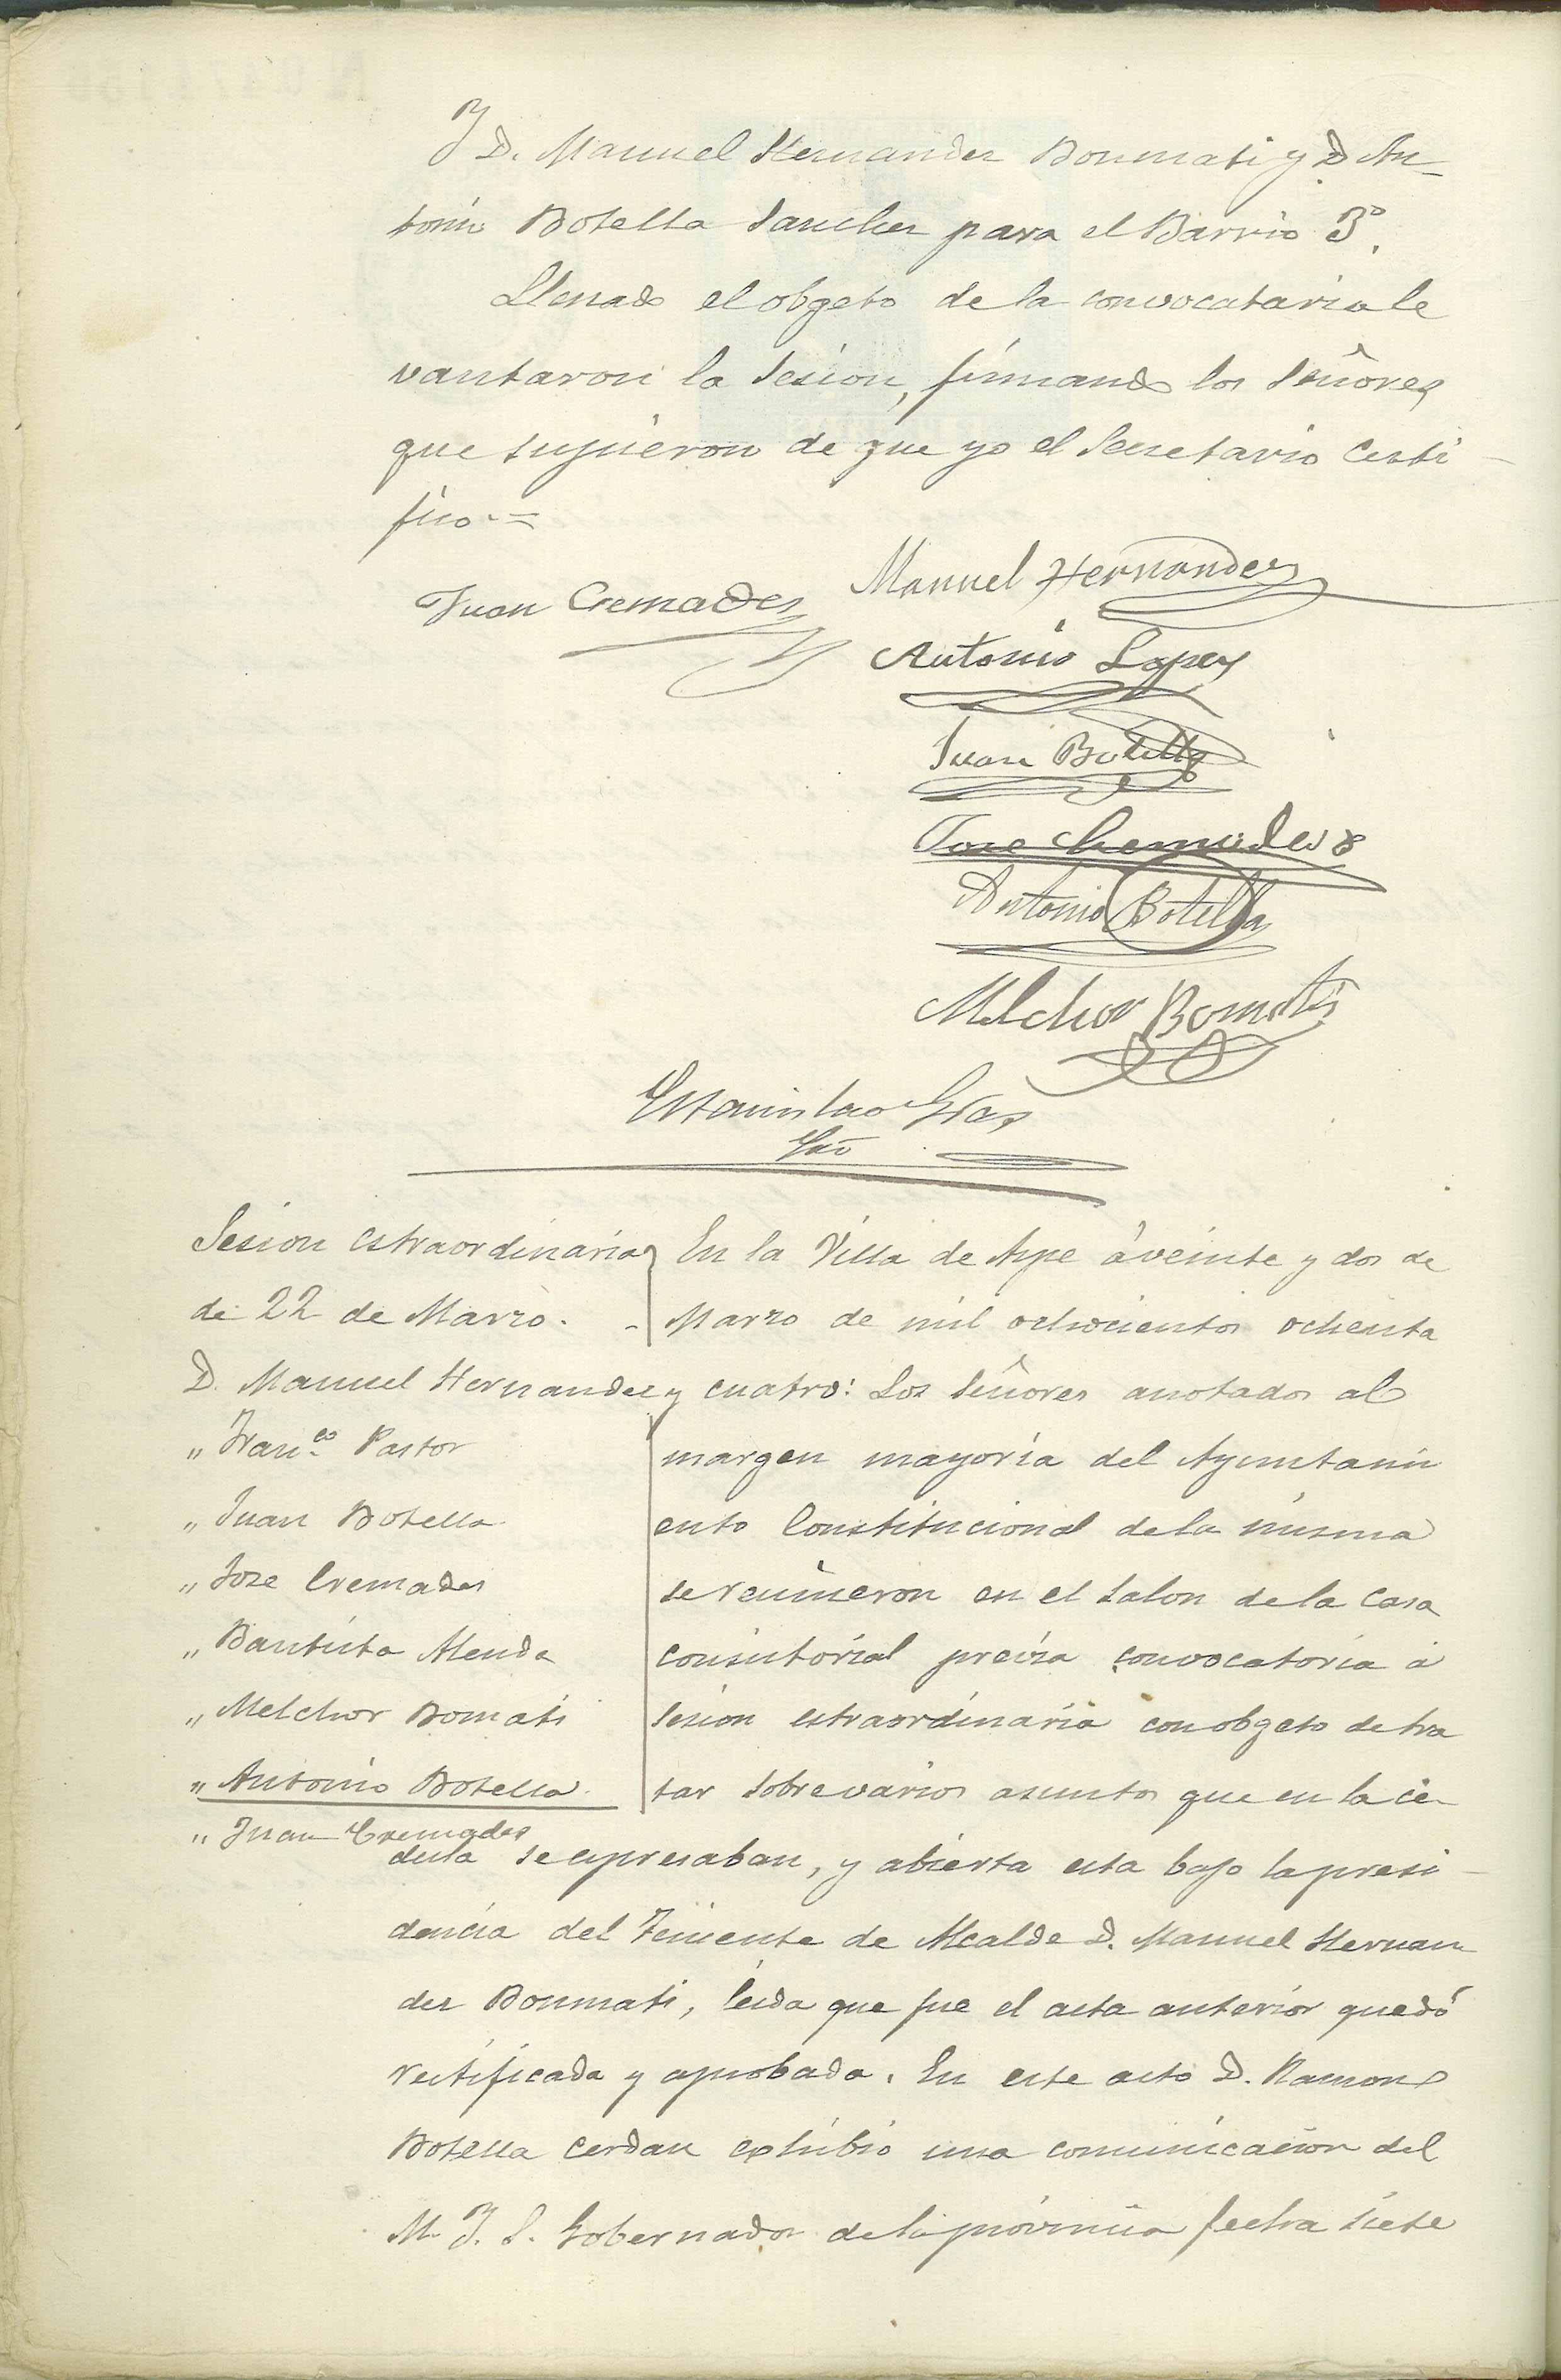 Y D. Manuel Hernandez Bonmati y D. An-
tonio Botella Sanchez para el Barrio 3º.
Llenado el obgeto de la convocatoria le
vantaron la sesion, firmando los Señores
que supieron de que yo el Secretario Certi-
fico.=
Juan Cremades
Manuel Hernandez
Antonio Lopez
Juan Botella
Jose Cremades
Antonio Botella
Melchor Bomati
Estanislao Gras
Srio
Sesion estraordinaria
de 22 de Marzo. -
D. Manuel Hernandez
" Franco. Pastor
" Juan Botella
" Jose Cremades
" Bautista Alenda
" Melchor Bomati
" Antonio Botella
" Juan Cremades
En la Villa de Aspe á veinte y dos de
Marzo de mil ochocientos ochenta
y cuatro: Los Señores anotados al
margen mayoria del Ayuntami
ento Constitucional de la misma
se reunieron en el salon de la Casa
consistorial previa convocatoria á
sesion estraordinaria con obgeto de tra
tar sobre varios asuntos que en la cé-
dula se espresaban, y abierta esta bajo la presi-
dencia del Teniente de Alcalde D. Manuel Hernan
dez Bonmati, leida que fue el acta anterior quedó
rectificada y aprobada. En este acto D. Ramon
Botella Cerdan exhibio una comunicacion del
M. Y. S. Gobernador de la provincia fecha siete